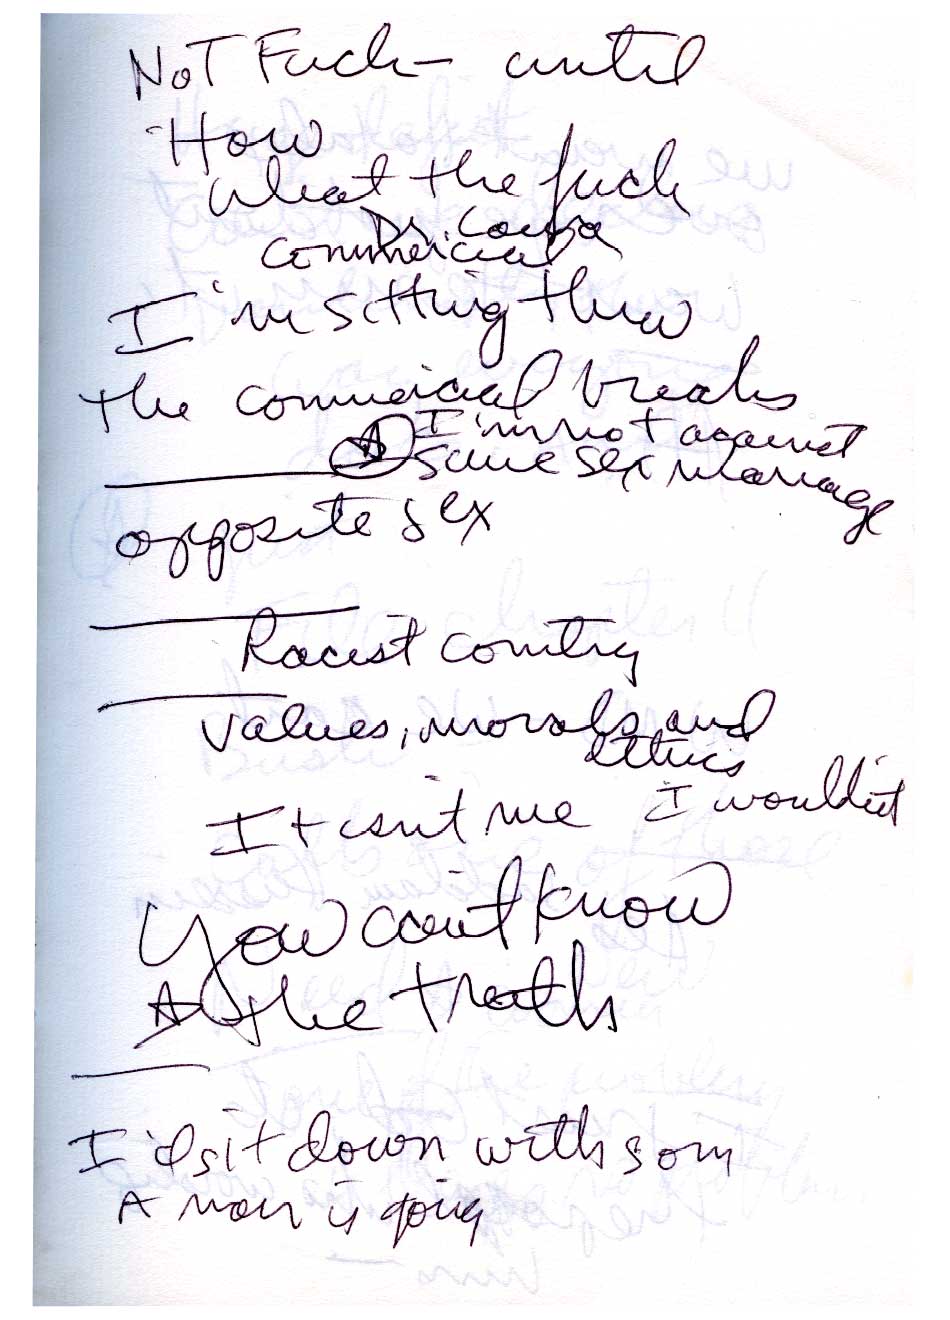 NOT Fuck- until
How
what the fuck
Dr. 
commercial
I'm sitting threw
the commercial breaks
I'm not against
same sex marriage
opposite sex
Racist country
values, morals and
ethics
It isn't me I wouldn't
You can't know
the truth
I'd sit down with som
A man is going